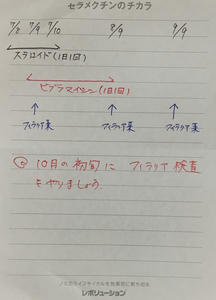 セラメクチンのチカラ
7/8 7/9 7/10 8/9 9/9
ステロイド(1日1回)
ビブラマイシン(1日1回)
フィラリア薬 フィラリア薬 フィラリア薬
10月の初旬に フィラリア検査
をやりましょう
ノミのライフサイクルを効果的に断ち切る
レボリューション